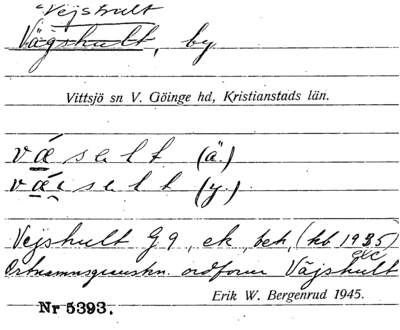 Vejshult
Vägshult, by
Vittsjö sn V. Göinge hd, Kristianstads län.
vǽsalt (ä.)
vǽisalt (y.)
Vejshult G9, ek, beb, (kb 1935)
Ortnamnsgranskn. ordform Väjshult
Erik W. Bergenrud 1945.
Nr 5393.